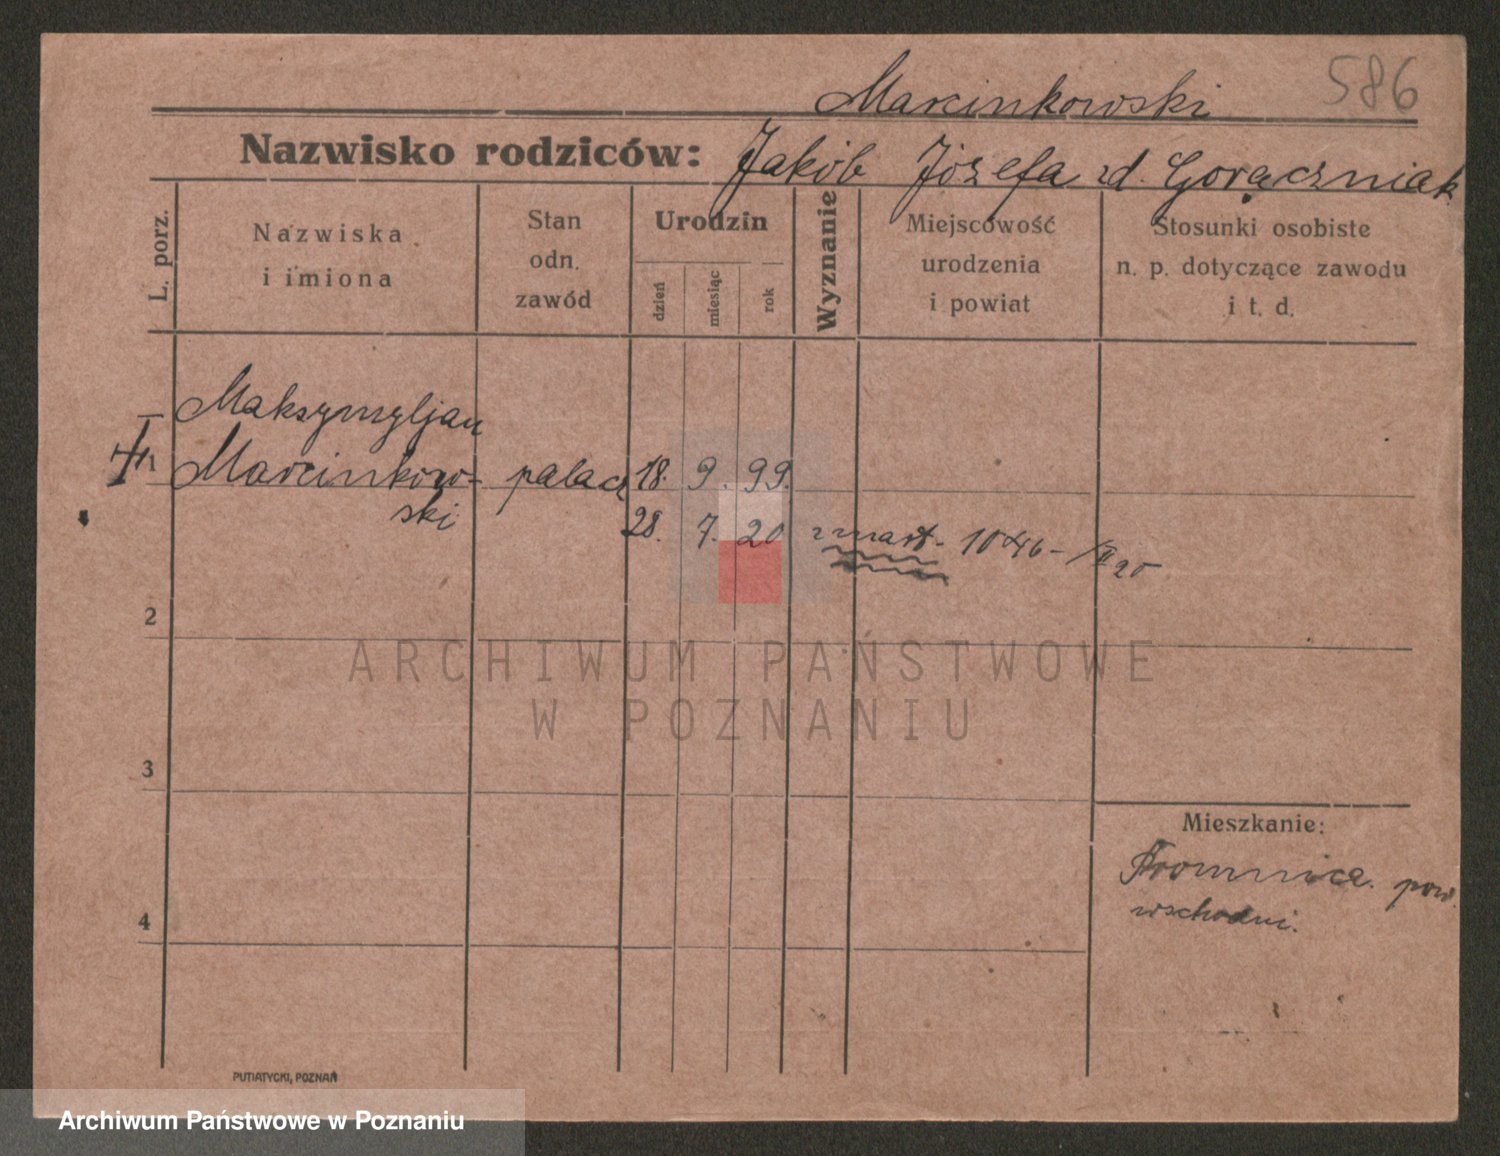 586
Marcinkowski
Nazwisko rodziców: Jakób Józefa zd. Gorączniak
L. porz.
Nazwiska
i imiona
Stan
odn.
zawód
Urodzin
dzień
miesiąc
rok
Wyznanie
Miejscowość
urodzenia
i powiat
Stosunki osobiste
n. p. dotyczące zawodu
i t. d.
Maksymyljan
1 Marcinkow- palacz 18. 9. 99.
ski 28. 7. 20 zmarł- 1046-/II 20
2
ARCHIWUM PAŃSTWOWE
W POZNANIU
3
Mieszkanie:
pow.
wschodni.
4
PUTIATYCKI, POZNAŃ
Archiwum Państwowe w Poznaniu